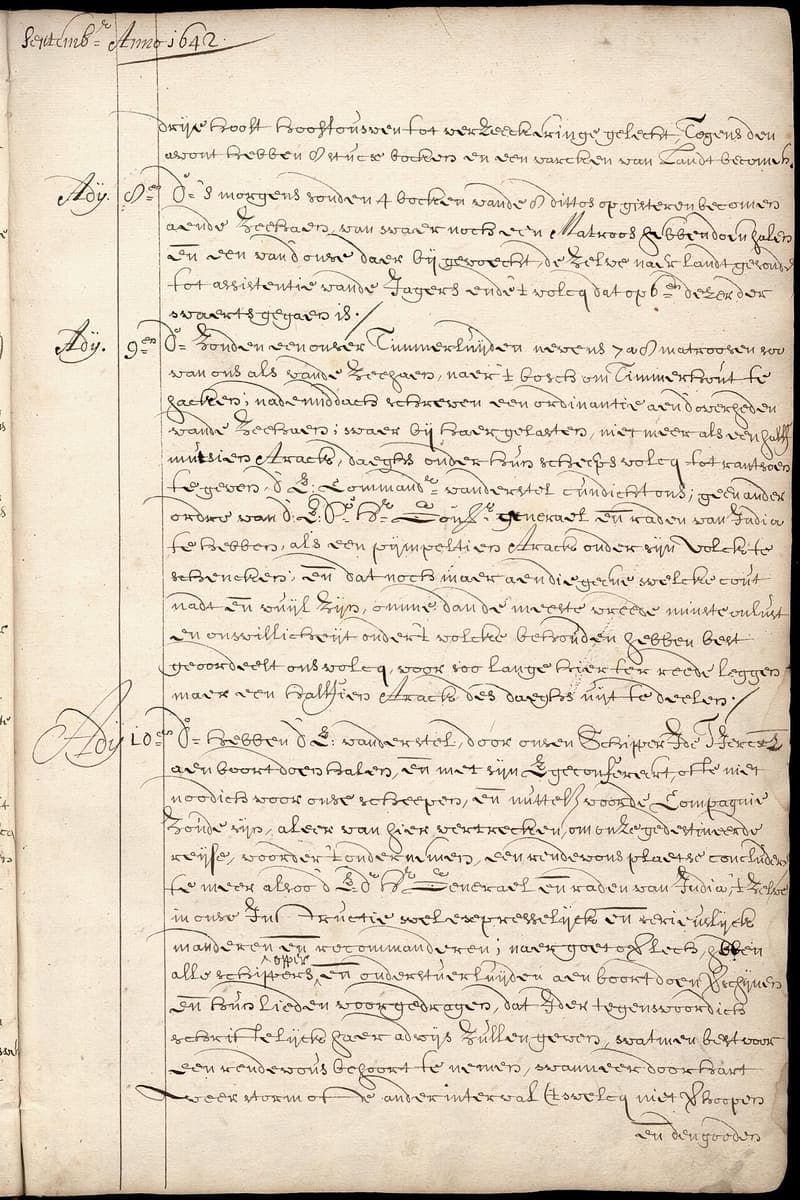 Septemb:r Anno 1642.
drije hooft hooftouwen tot verzeeckeringe gelecht, Tegens den
avont hebben 8 stucx bocken en een varcken van Landt becomen.
Adij. 8en Do: 's morgens sonden 4 bocken vande 8 dittos op gisteren becomen
aende Zeehaen, van waer noch een Matroos hebben doen halen
en een van d'onse daer bij gevoecht, de zelve naer landt gesonden
tot assistentie vande Jagers ende 't volcq dat op 6en dezer der
waerts gegaen is. /
Adij. 9en Do: Zonden een onser Timmerluijden nevens 7 a 8 matroosen soo
van ons als vande Zeehaen, naer 't bosch om Timmerhout te
hacken; nademiddach schreven een ordinantie aen d'overheden
vande Zeehaen; waer bij haer gelasten, niet meer als een half
mutsien Arack, daeghs onder hun scheeps volcq tot rantsoen
te geven, d' E: Command:r vanderstel cundicht ons; geen ander
ordre van d: E: Hr: Gouvr: generael en raden van India
te hebben, als een pijmpeltien Arack onder sijn volck te
schencken; en dat noch maer aen die geene welcke cout
nadt en vuijl zijn, omme dan de meeste vreede minste onlust
en onwillicheijt onder 't volcke behouden hebben best
geoordeelt ons volcq, voor soo lange hier ter reede leggen
maer een halftien Arack des daeghs uijt te deelen. /
Adij 10en Do: hebben d' E: vanderstel, door onsen Schipper Ide Tjercxz
aen boort doen halen, en met sijn E geconfereert, ofte niet
noodich voor onse scheepen, en nuttelf voor de Compagnie
zoude sijn, aleer van hier vertrecken, om onze gedestineerde
reijse, voorder t'ondernemen, een rendevous plaetse concluderen
te meer alsoo d' E: Hr Generael en raden van India, 't zelve
in onse Instructie wel expresselijck en serieuslijck
manderen en recommanderen; naer goetof lech, hebben
alle schippers, opper en onderstuerluijden aen boort doen verschijnen
en hun lieden voorgedragen, dat Ider tegenwoordich
schrittelijck haer advijs zullen geven, wat men best voor
een rendevous behoort te nemen, wanneer door hart
weer storm ofte ander interval ('t welcq niet verhoopen
en den gooden